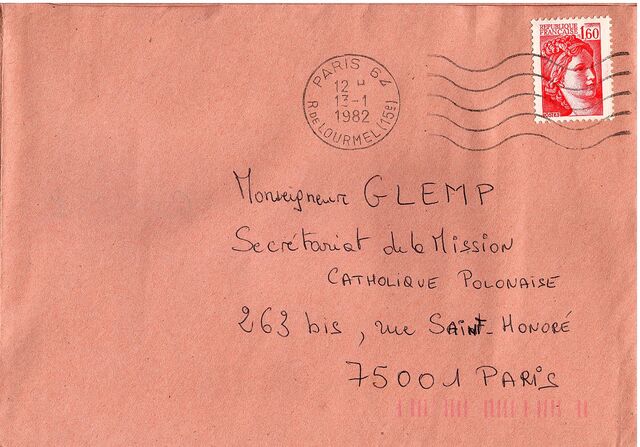 REPUBLIQUE
FRANCAISE
1,60
POSTES
PARIS 64
12 H
13-1
1982
R. DE LOURMEL (15e)
Monseigneur GLEMP
Secrétariat de la Mission
CATHOLIQUE POLONAISE
263 bis, rue SAINT-HONORÉ
75001 PARIS